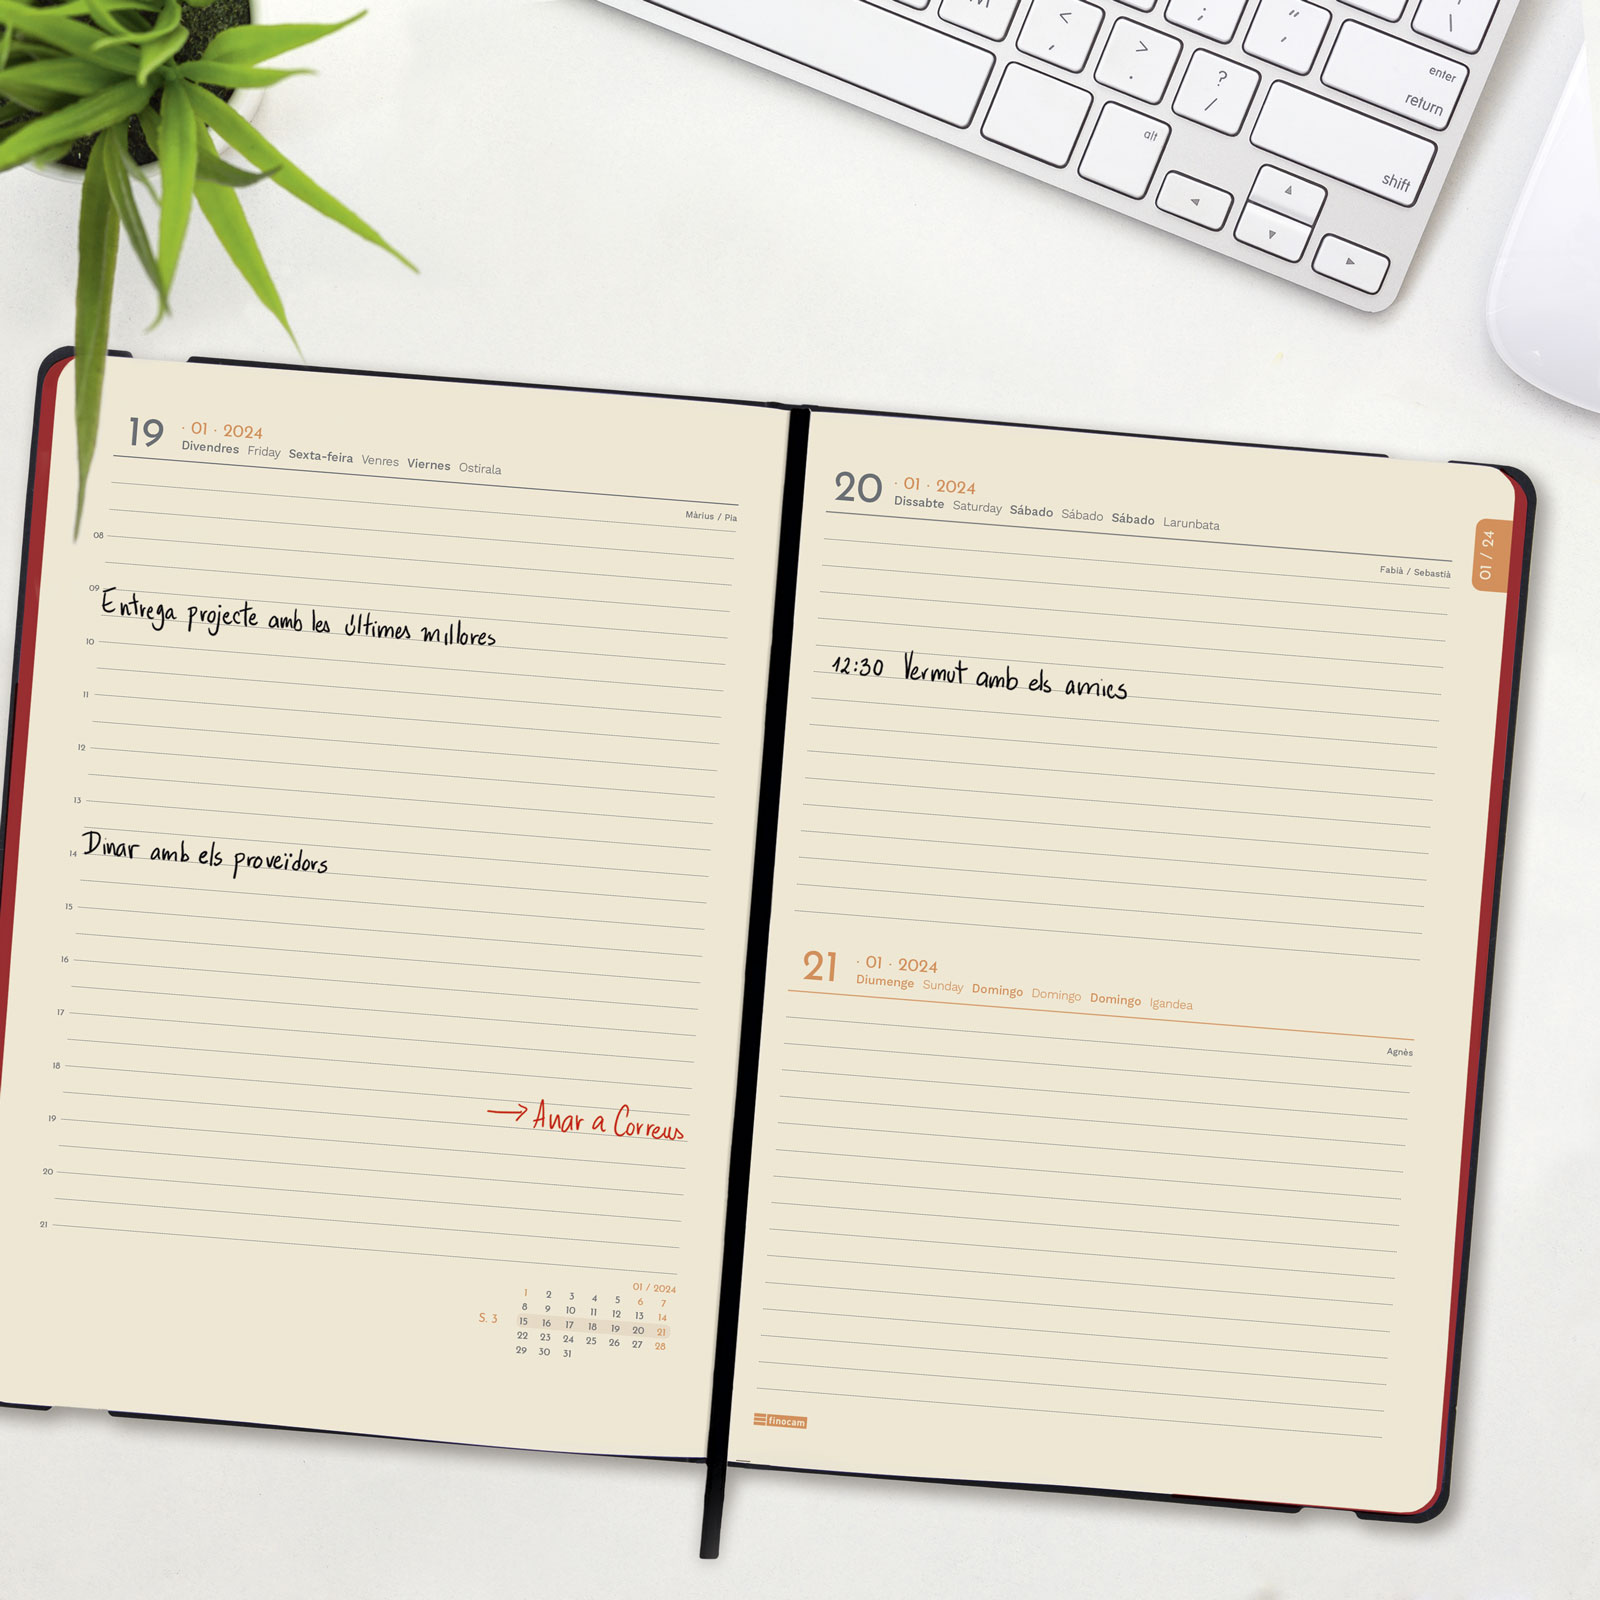 M
<
,
>
.
?
/
;
"
,
\
enter
return
alt
shift
19 · 01 · 2024
Divendres Friday Sexta-feira Venres Viernes Ostirala
Màrius / Pia
08
09 Entrega projecte amb les últimes millores
10
11
12
13
14 Dinar amb els proveïdors
15
16
17
18
→ Anar a Correus
19
20
21
01 / 2024
1 2 3 4 5 6 7
8 9 10 11 12 13 14
S. 3 15 16 17 18 19 20 21
22 23 24 25 26 27 28
29 30 31
20 · 01 · 2024
Dissabte Saturday Sábado Sábado Sábado Larunbata
Fabià / Sebastià
01 / 24
12:30 Vermut amb els amics
21 · 01 · 2024
Diumenge Sunday Domingo Domingo Domingo Igandea
Agnès
finocam